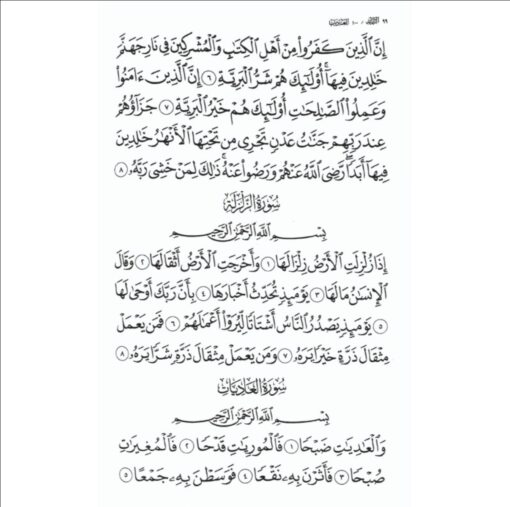 ٩٩ الزلزلة / ١٠٠ العاديات
إِنَّ ٱلَّذِينَ كَفَرُوا۟ مِنْ أَهْلِ ٱلْكِتَٰبِ وَٱلْمُشْرِكِينَ فِى نَارِ جَهَنَّمَ
خَٰلِدِينَ فِيهَآ ۚ أُو۟لَٰٓئِكَ هُمْ شَرُّ ٱلْبَرِيَّةِ ٦ إِنَّ ٱلَّذِينَ ءَامَنُوا۟
وَعَمِلُوا۟ ٱلصَّٰلِحَٰتِ أُو۟لَٰٓئِكَ هُمْ خَيْرُ ٱلْبَرِيَّةِ ٧ جَزَآؤُهُمْ
عِندَ رَبِّهِمْ جَنَّٰتُ عَدْنٍ تَجْرِى مِن تَحْتِهَا ٱلْأَنْهَٰرُ خَٰلِدِينَ
فِيهَآ أَبَدًا ۖ رَّضِىَ ٱللَّهُ عَنْهُمْ وَرَضُوا۟ عَنْهُ ۚ ذَٰلِكَ لِمَنْ خَشِىَ رَبَّهُۥ ٨
سُورَةُ الزَّلْزَلَةِ
بِسْمِ ٱللَّهِ ٱلرَّحْمَٰنِ ٱلرَّحِيمِ
إِذَا زُلْزِلَتِ ٱلْأَرْضُ زِلْزَالَهَا ١ وَأَخْرَجَتِ ٱلْأَرْضُ أَثْقَالَهَا ٢ وَقَالَ
ٱلْإِنسَٰنُ مَا لَهَا ٣ يَوْمَئِذٍ تُحَدِّثُ أَخْبَارَهَا ٤ بِأَنَّ رَبَّكَ أَوْحَىٰ لَهَا
٥ يَوْمَئِذٍ يَصْدُرُ ٱلنَّاسُ أَشْتَاتًا لِّيُرَوْا۟ أَعْمَٰلَهُمْ ٦ فَمَن يَعْمَلْ
مِثْقَالَ ذَرَّةٍ خَيْرًا يَرَهُۥ ٧ وَمَن يَعْمَلْ مِثْقَالَ ذَرَّةٍ شَرًّا يَرَهُۥ ٨
سُورَةُ العَادِيَاتِ
بِسْمِ ٱللَّهِ ٱلرَّحْمَٰنِ ٱلرَّحِيمِ
وَٱلْعَٰدِيَٰتِ ضَبْحًا ١ فَٱلْمُورِيَٰتِ قَدْحًا ٢ فَٱلْمُغِيرَٰتِ
صُبْحًا ٣ فَأَثَرْنَ بِهِۦ نَقْعًا ٤ فَوَسَطْنَ بِهِۦ جَمْعًا ٥